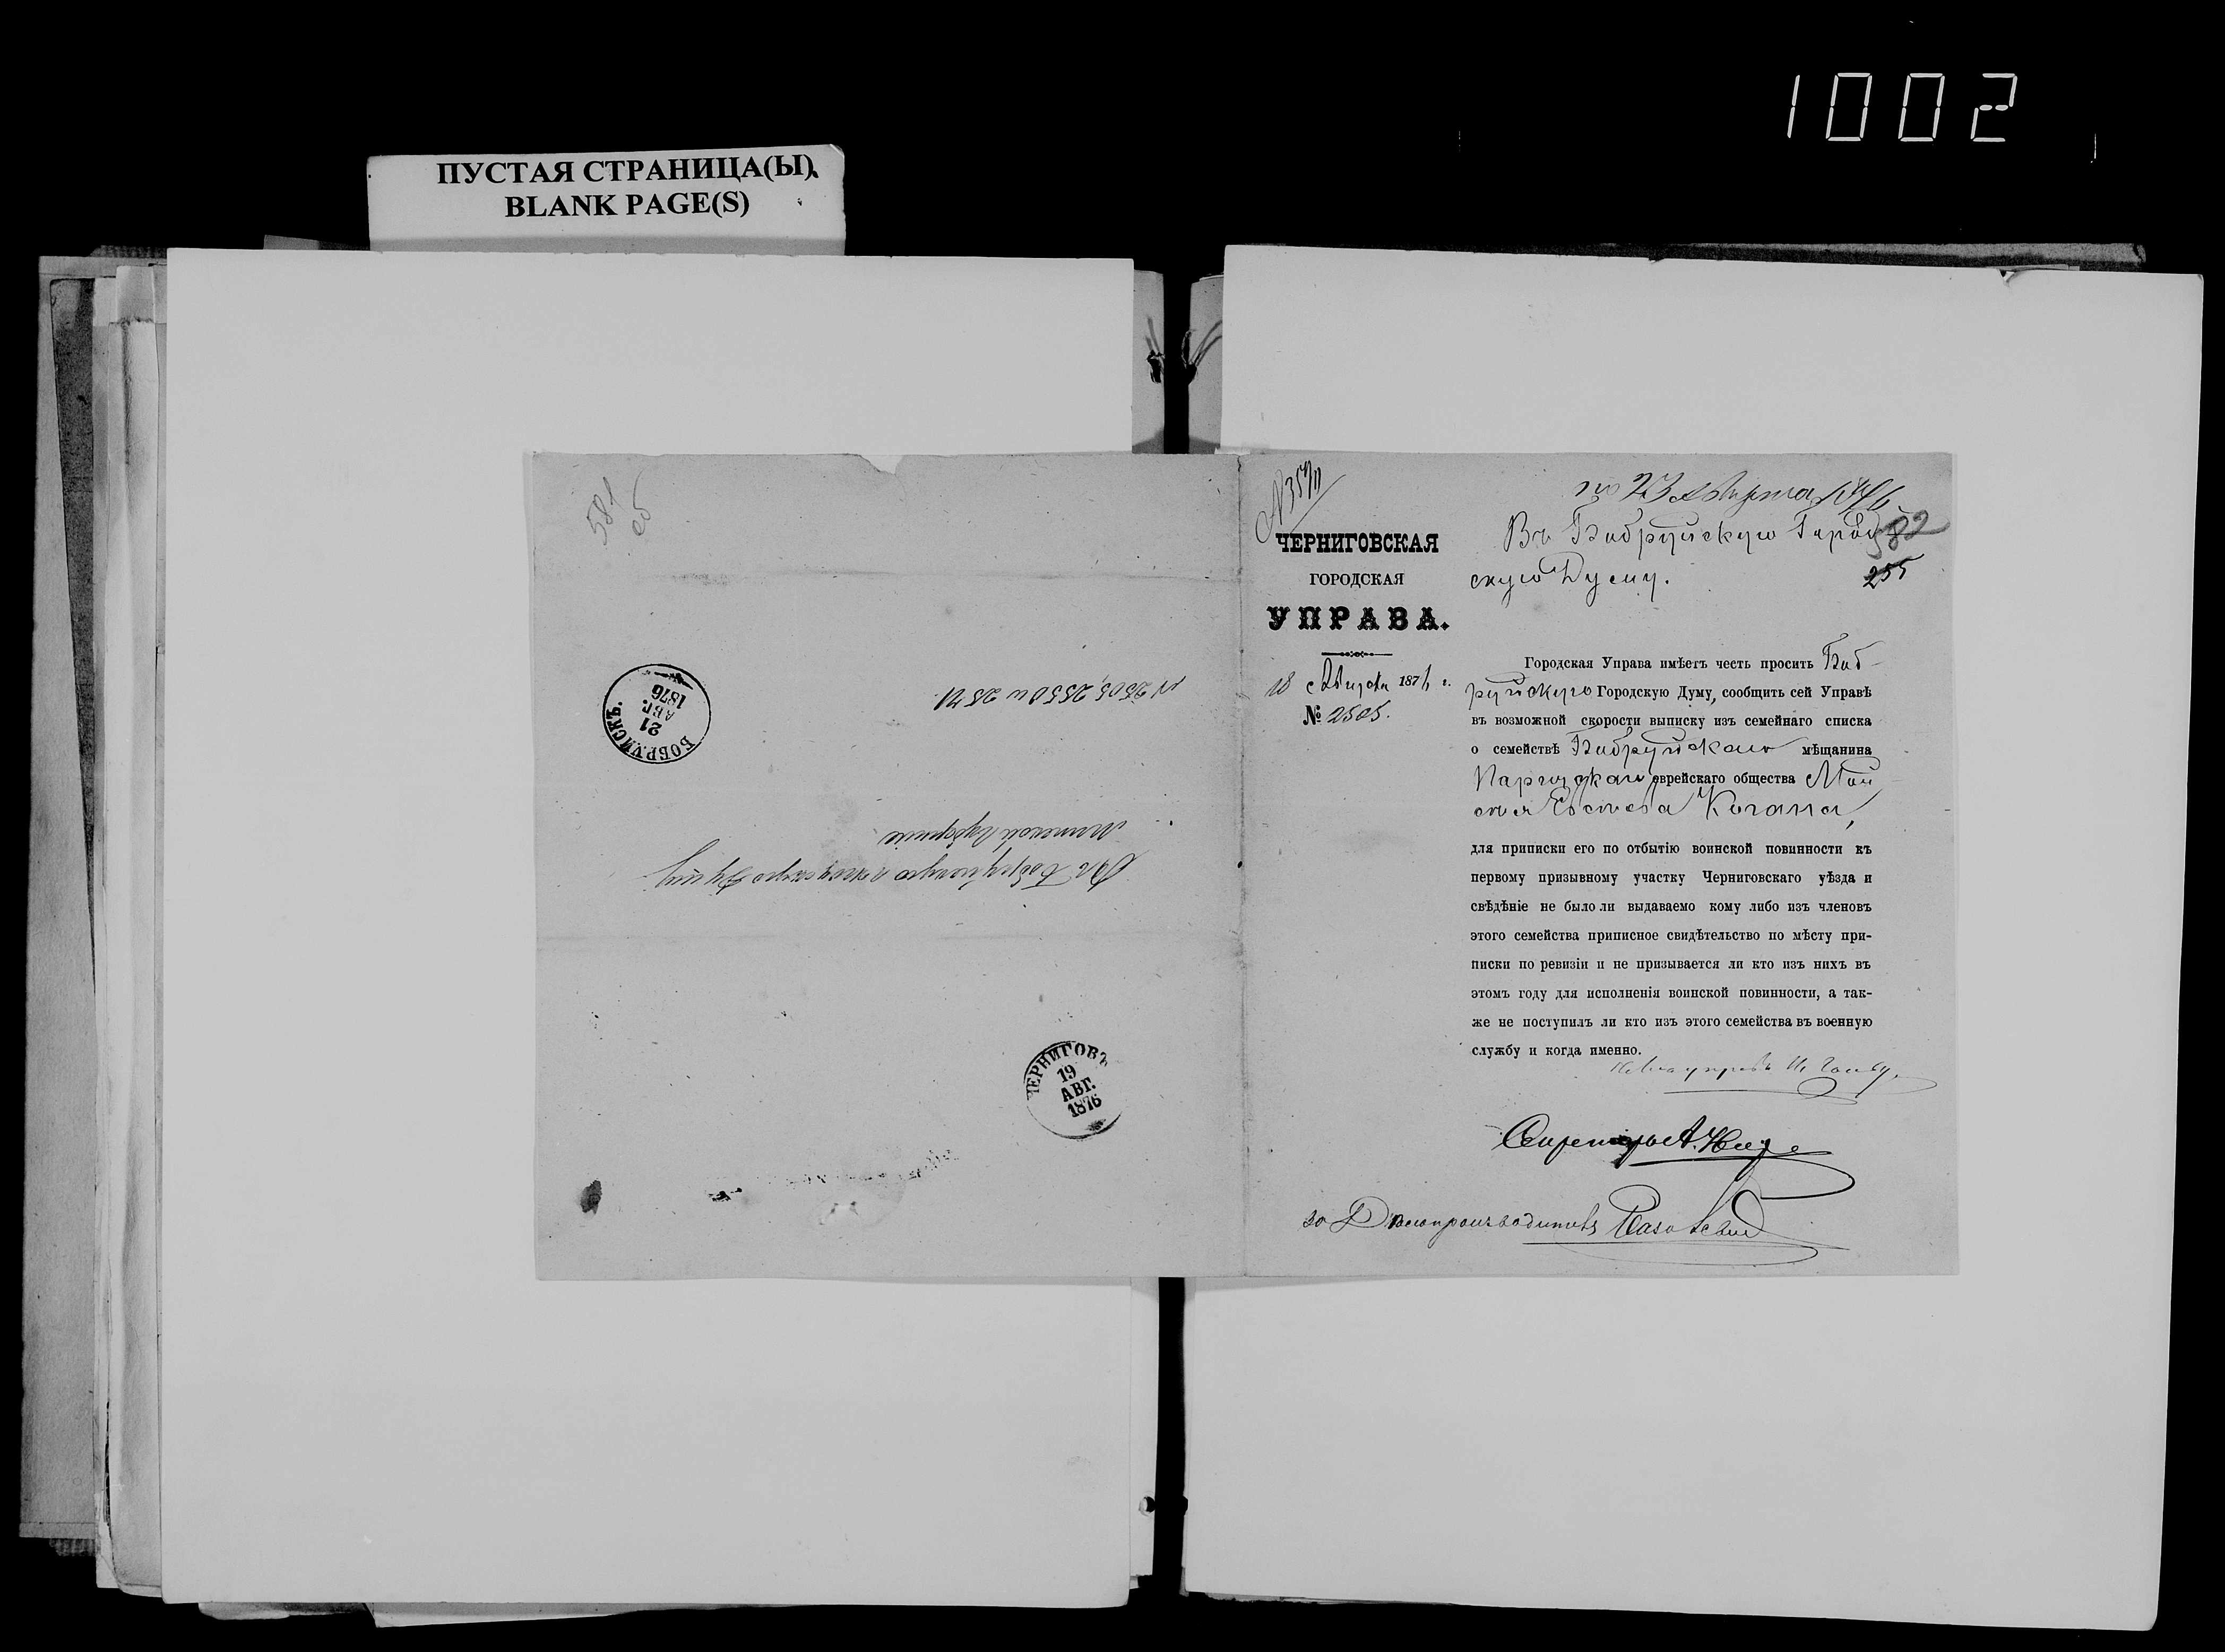 1002
ПУСТАЯ СТРАНИЦА(Ы)
BLANK PAGE(S)
581
об
№ 2505, 2550 и 2571.
БОБРУЙСКЪ
21
АВГ.
1876
Въ Бобруйскую Городскую Думу
Минской Губерніи
ЧЕРНИГОВЪ
19
АВГ.
1876
23 Августа 1876
ЧЕРНИГОВСКАЯ
ГОРОДСКАЯ
УПРАВА.
18 Августа 1876 г.
№ 2505.
Въ Бобруйскую Город
скую Думу.
582
255
Городская Управа имѣетъ честь просить Боб-
руйскую Городскую Думу, сообщить сей Управѣ
въ возможной скорости выписку изъ семейнаго списка
о семействѣ Бобруйскаго мѣщанина
Паричскаго еврейскаго общества
Когана,
для приписки его по отбытію воинской повинности къ
первому призывному участку Черниговскаго уѣзда и
свѣдѣніе не было ли выдаваемо кому либо изъ членовъ
этого семейства приписное свидѣтельство по мѣсту при-
писки по ревизіи и не призывается ли кто изъ нихъ въ
этомъ году для исполненія воинской повинности, а так-
же не поступилъ ли кто изъ этого семейства въ военную
службу и когда именно.
Секретарь А.
за Дѣлопроизводителя